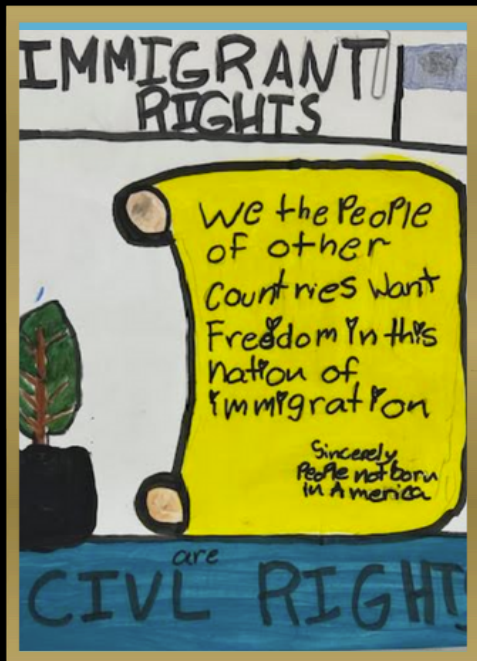 IMMIGRANT
RIGHTS
We the People
of other
countries want
Freedom in this
nation of
immigration
Sincerely
People not born
in America
are
CIVL RIGHTS